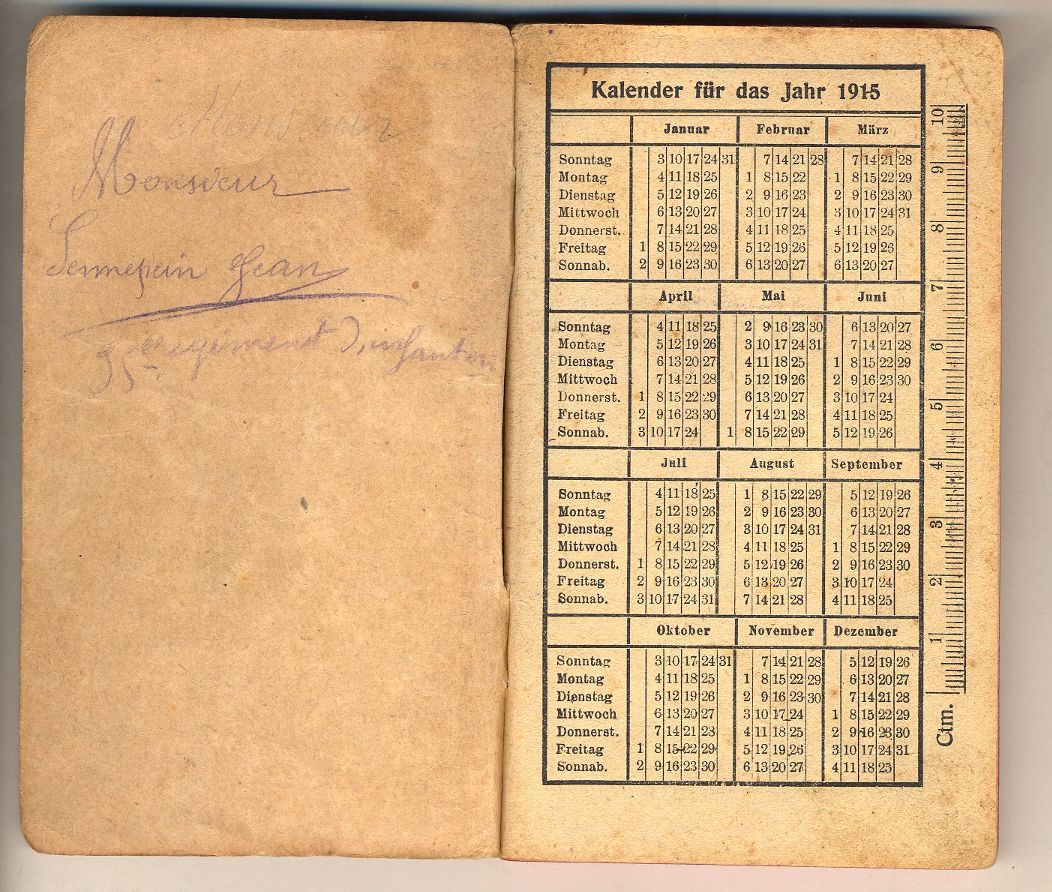 Monsieur
Monsieur
Jean
35 Regiment D'infanterie
Kalender für das Jahr 1915
Januar Februar März
Sonntag 3 10 17 24 31 7 14 21 28 7 14 21 28
Montag 4 11 18 25 1 8 15 22 1 8 15 22 29
Dienstag 5 12 19 26 2 9 16 23 2 9 16 23 30
Mittwoch 6 13 20 27 3 10 17 24 3 10 17 24 31
Donnerst. 7 14 21 28 4 11 18 25 4 11 18 25
Freitag 1 8 15 22 29 5 12 19 26 5 12 19 26
Sonnab. 2 9 16 23 30 6 13 20 27 6 13 20 27
April Mai Juni
Sonntag 4 11 18 25 2 9 16 23 30 6 13 20 27
Montag 5 12 19 26 3 10 17 24 31 7 14 21 28
Dienstag 6 13 20 27 4 11 18 25 1 8 15 22 29
Mittwoch 7 14 21 28 5 12 19 26 2 9 16 23 30
Donnerst. 1 8 15 22 29 6 13 20 27 3 10 17 24
Freitag 2 9 16 23 30 7 14 21 28 4 11 18 25
Sonnab. 3 10 17 24 1 8 15 22 29 5 12 19 26
Juli August September
Sonntag 4 11 18 25 1 8 15 22 29 5 12 19 26
Montag 5 12 19 26 2 9 16 23 30 6 13 20 27
Dienstag 6 13 20 27 3 10 17 24 31 7 14 21 28
Mittwoch 7 14 21 28 4 11 18 25 1 8 15 22 29
Donnerst. 1 8 15 22 29 5 12 19 26 2 9 16 23 30
Freitag 2 9 16 23 30 6 13 20 27 3 10 17 24
Sonnab. 3 10 17 24 31 7 14 21 28 4 11 18 25
Oktober November Dezember
Sonntag 3 10 17 24 31 7 14 21 28 5 12 19 26
Montag 4 11 18 25 1 8 15 22 29 6 13 20 27
Dienstag 5 12 19 26 2 9 16 23 30 7 14 21 28
Mittwoch 6 13 20 27 3 10 17 24 1 8 15 22 29
Donnerst. 7 14 21 28 4 11 18 25 2 9 16 23 30
Freitag 1 8 15 22 29 5 12 19 26 3 10 17 24 31
Sonnab. 2 9 16 23 30 6 13 20 27 4 11 18 25
Ctm. 1 2 3 4 5 6 7 8 9 10